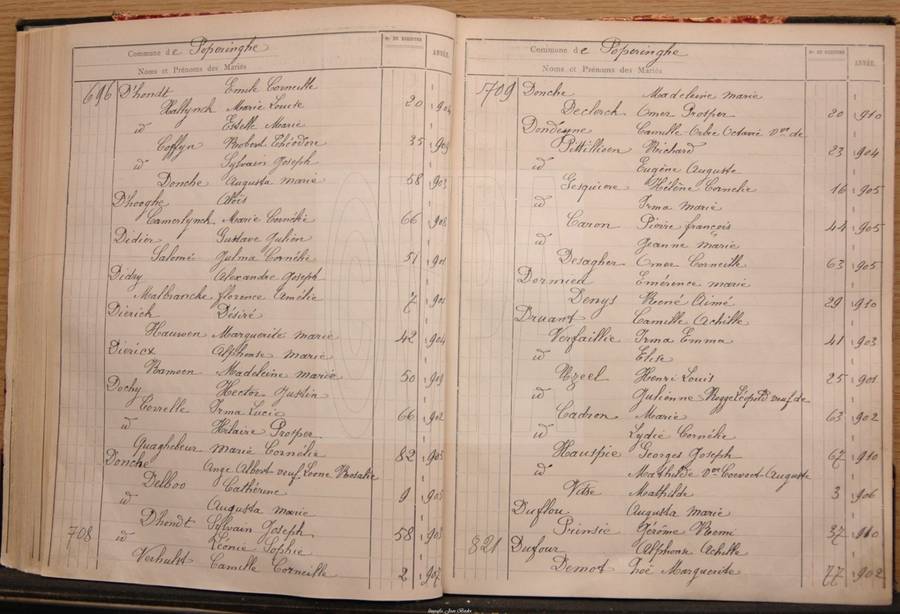 Commune de Poperinghe
Nos DE REGISTRE
ANNÉE
Noms et Prénoms des Mariés
696 D'hondt Emile Corneille
Hallynck Marie Louise 20 1904
id Estelle Marie
Coffyn Robert Théodore 35 1909
id Sylvain Joseph
Donche Augusta Marie 58 1903
D'hooghe Aloïs
Camerlynck Marie Cornélie 66 1908
Didier Gustave Julien
Salomé Julma Cornélie 51 1901
Didry Alexandre Joseph
Malbranche Florence Amélie 7 1901
Dierick Désiré
Hauwen Marguerite Marie 42 1904
Diericx Alphonse Marie
Rameen Madeleine Marie 50 1909
Dochy Hector Justin
Correlle Irma Lucie 66 1902
id Hilaire Prosper
Quaghebeur Marie Cornélie 82 1903
Donche Ange Albert veuf Leene Rosalie
Delboo Cathérine 9 1903
id Augusta Marie
Dhondt Sylvain Joseph 58 1903
708 id Léonie Sophie
Verhulst Camille Corneille 2 1907
Commune de Poperinghe
Nos DE REGISTRE
ANNÉE
Noms et Prénoms des Mariés
709 Donche Madeleine Marie
Declerck Omer Prosper 20 1910
Dondeyne Camille Octavie
Pittillioen Richard 23 1904
id Eugène Auguste
Gesquiere Hélène Cornelie 16 1905
id Irma Marie
Caron Pierre françois 44 1905
id Jeanne Marie
Desagher Omer Corneille 63 1905
Dormieu Emérence Marie
Denys René Aimé 29 1910
Druant Camille Achille
Verfaillie Irma Emma 41 1903
id Elise
Rzeel Henri Louis 25 1901
id Julienne Rogge Léopold veuf de
Cadron Marie 63 1902
id Lydie Cornélie
Hauspie Georges Joseph 67 1910
id Mathilde Auguste
Vitse Mathilde 3 1906
Duflou Augusta Marie
Prinsie Gérôme Remi 37 1910
821 Dufour Alphonse Achille
Demot Zoë Marguerite 77 1902